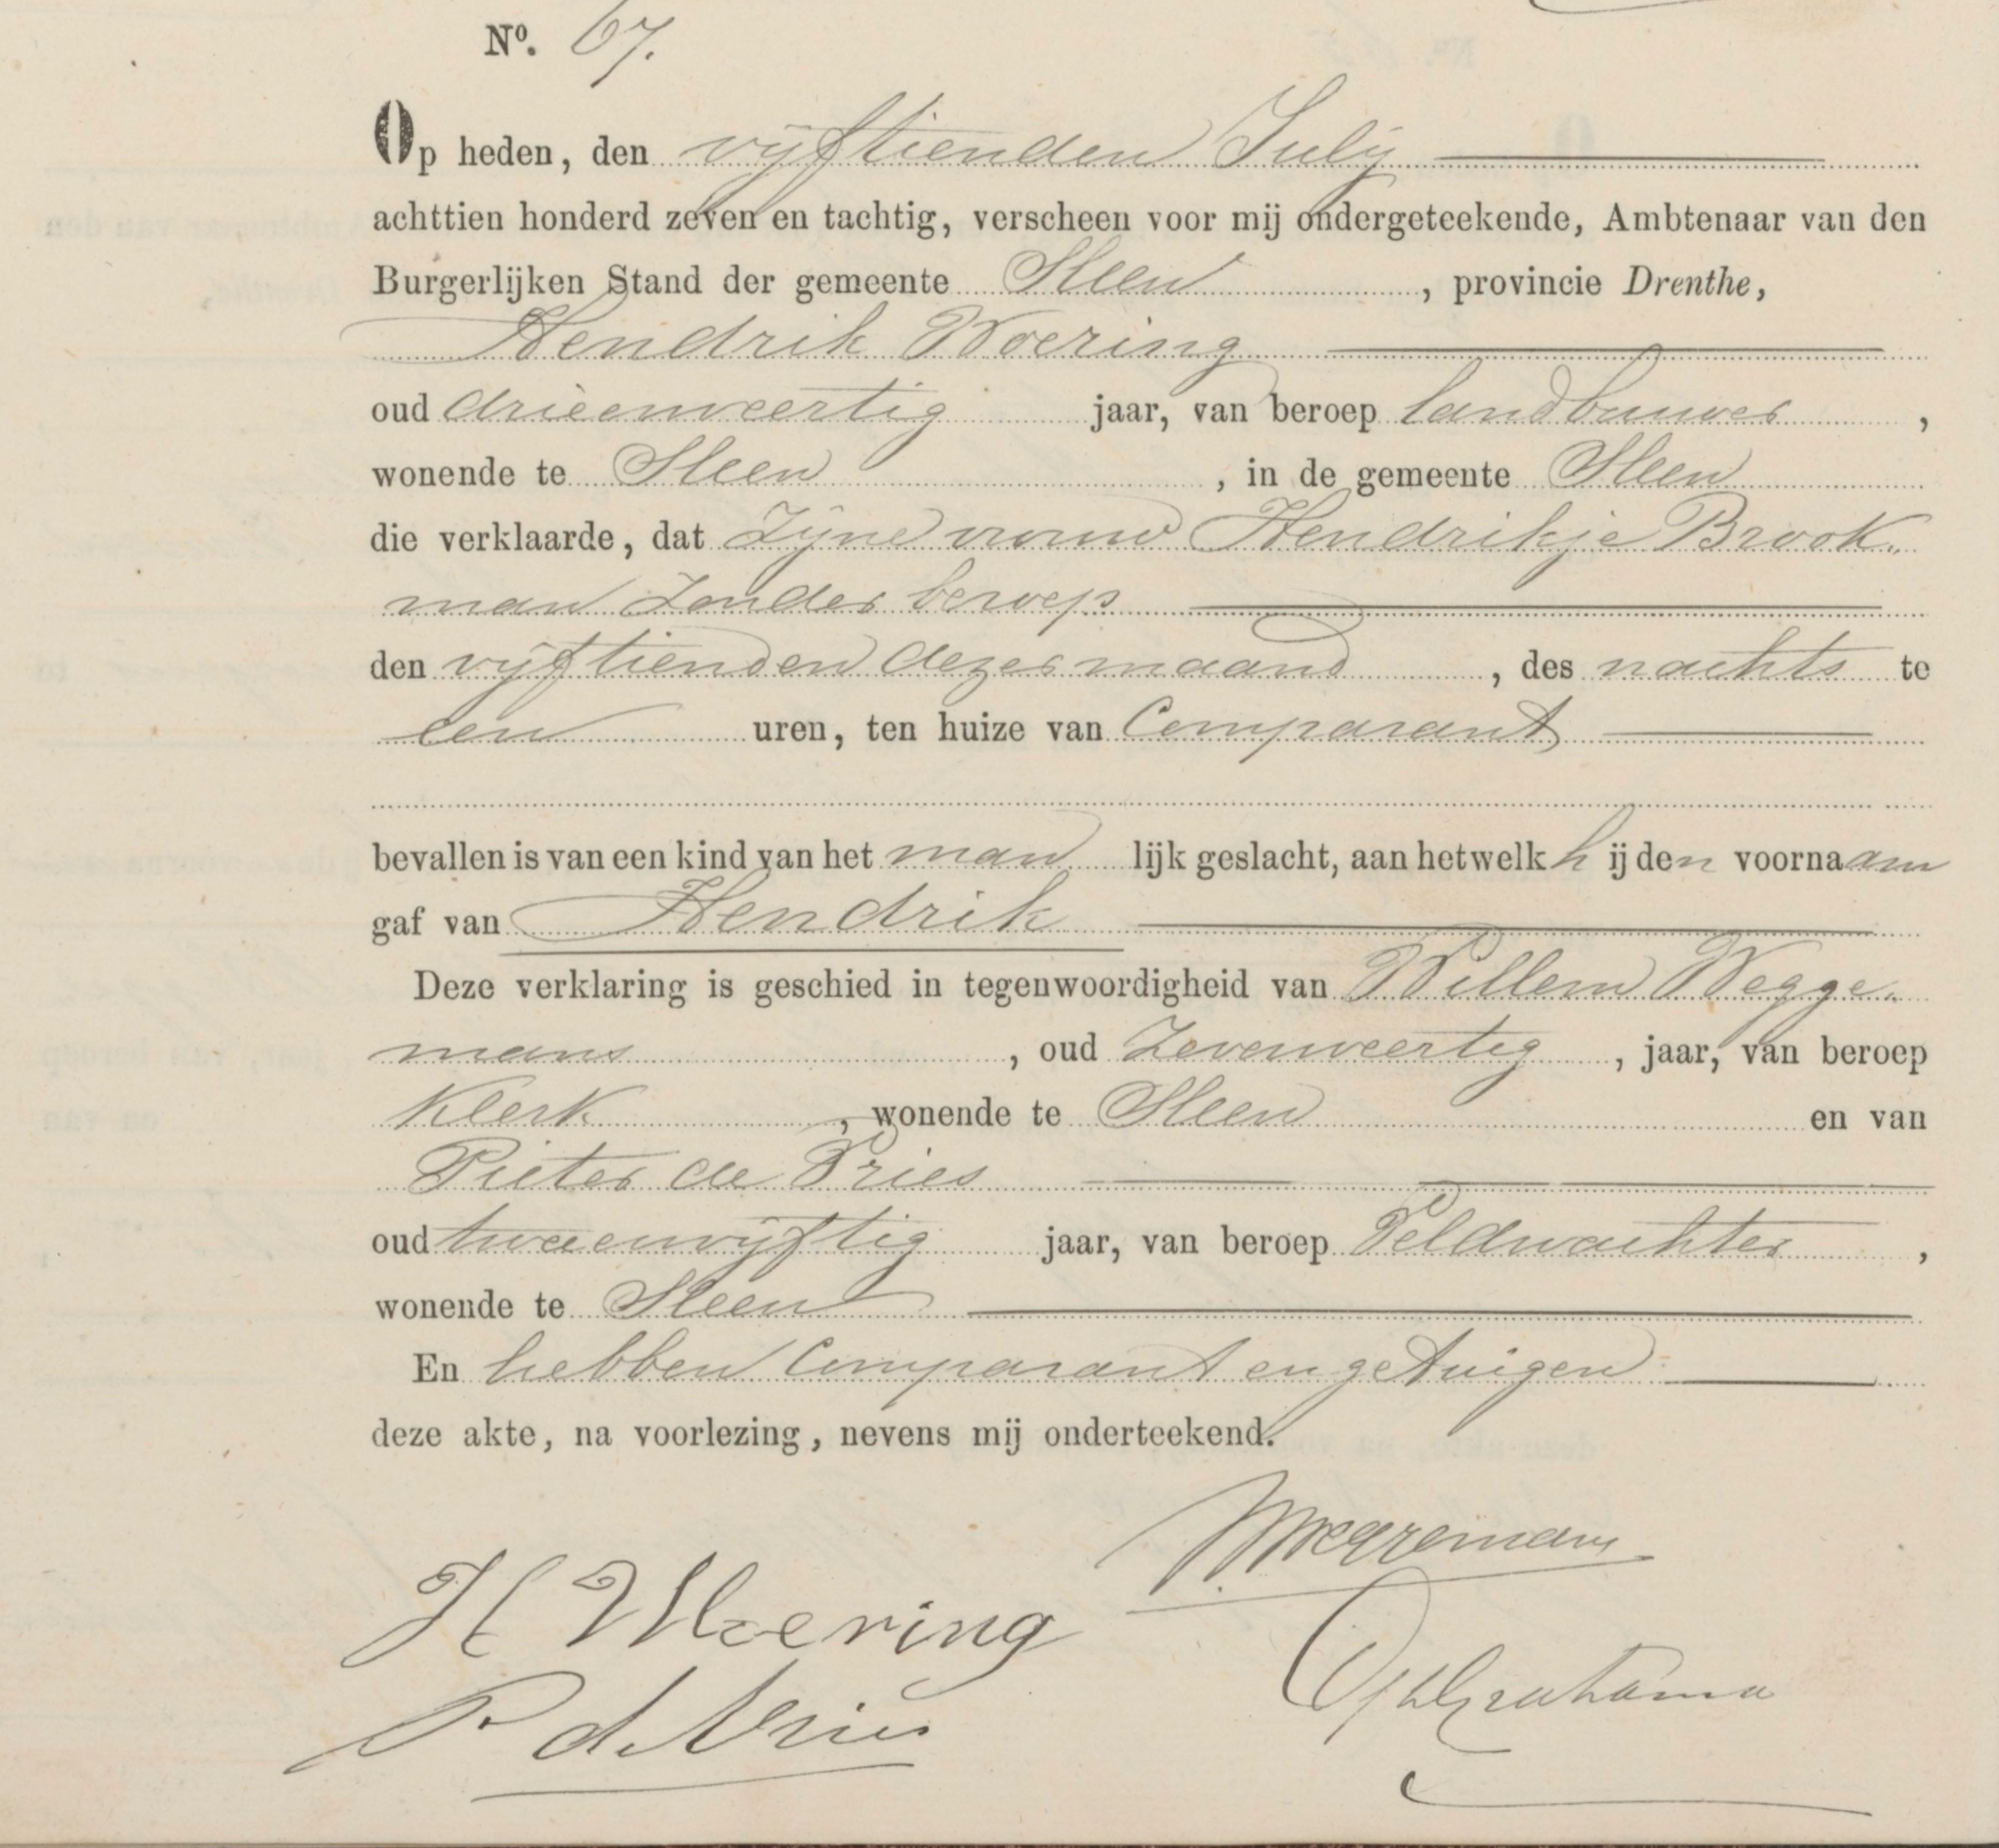 Nº. 67.
Op heden, den vijftienden July
achttien honderd zeven en tachtig, verscheen voor mij ondergeteekende, Ambtenaar van den
Burgerlijken Stand der gemeente Sleen, provincie Drenthe,
Hendrik Woering
oud drieenveertig jaar, van beroep landbouwer,
wonende te Sleen, in de gemeente Sleen
die verklaarde, dat Zijne vrouw Hendrikje Brook-
man Zonder beroep
den vijftienden dezer maand, des nachts te
een uren, ten huize van Comparant
bevallen is van een kind van het man lijk geslacht, aan hetwelk h ij den voornaam
gaf van Hendrik
Deze verklaring is geschied in tegenwoordigheid van Willem Wegge-
mans, oud Zevenveertig, jaar, van beroep
Klerk, wonende te Sleen en van
Pieter de Vries
oud tweeenvijftig jaar, van beroep Veldwachter,
wonende te Sleen
En hebben Comparant en getuigen
deze akte, na voorlezing, nevens mij onderteekend.
WWeggemans
H Woering
P de Vries